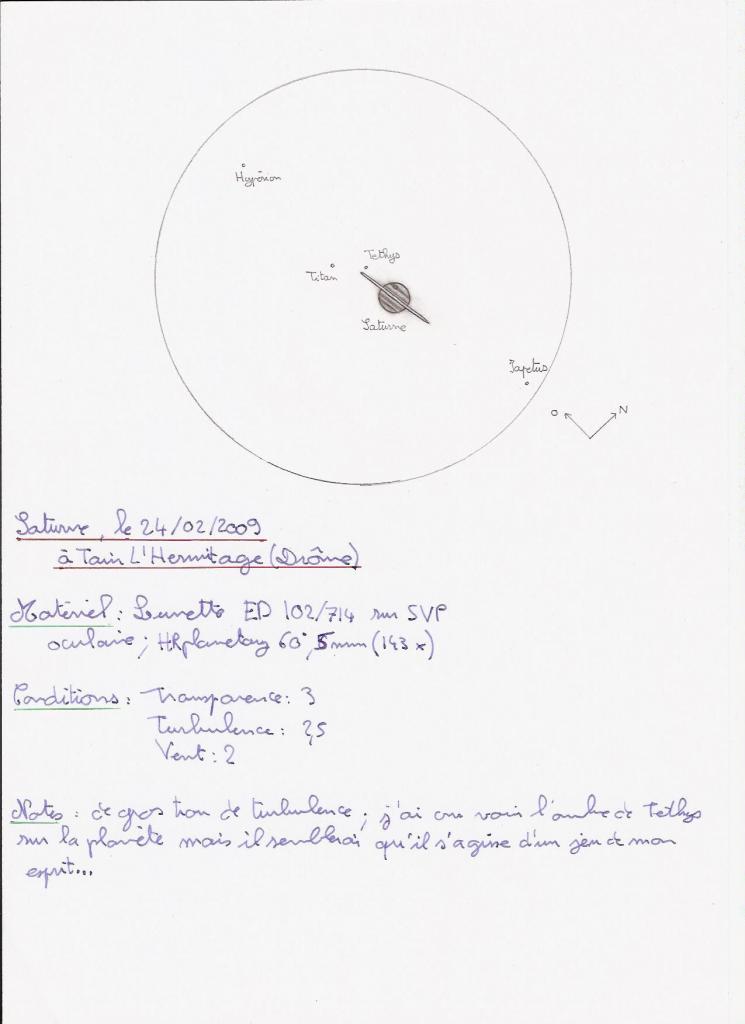 Hypérion
Tethys
Titan
Saturne
Japetus
O
N
Saturne, le 24/02/2009
à Tain L'Hermitage (Drôme)
Matériel : Lunette ED 102/714 sur SVP
oculaire ; HRplanetary 60°, 5mm (143 x)
Conditions : Transparence : 3
Turbulence : 2,5
Vent : 2
Notes : de gros trou de turbulence ; j'ai cru voir l'ombre de Tethys
sur la planète mais il semblerai qu'il s'agisse d'un jeu de mon
esprit...